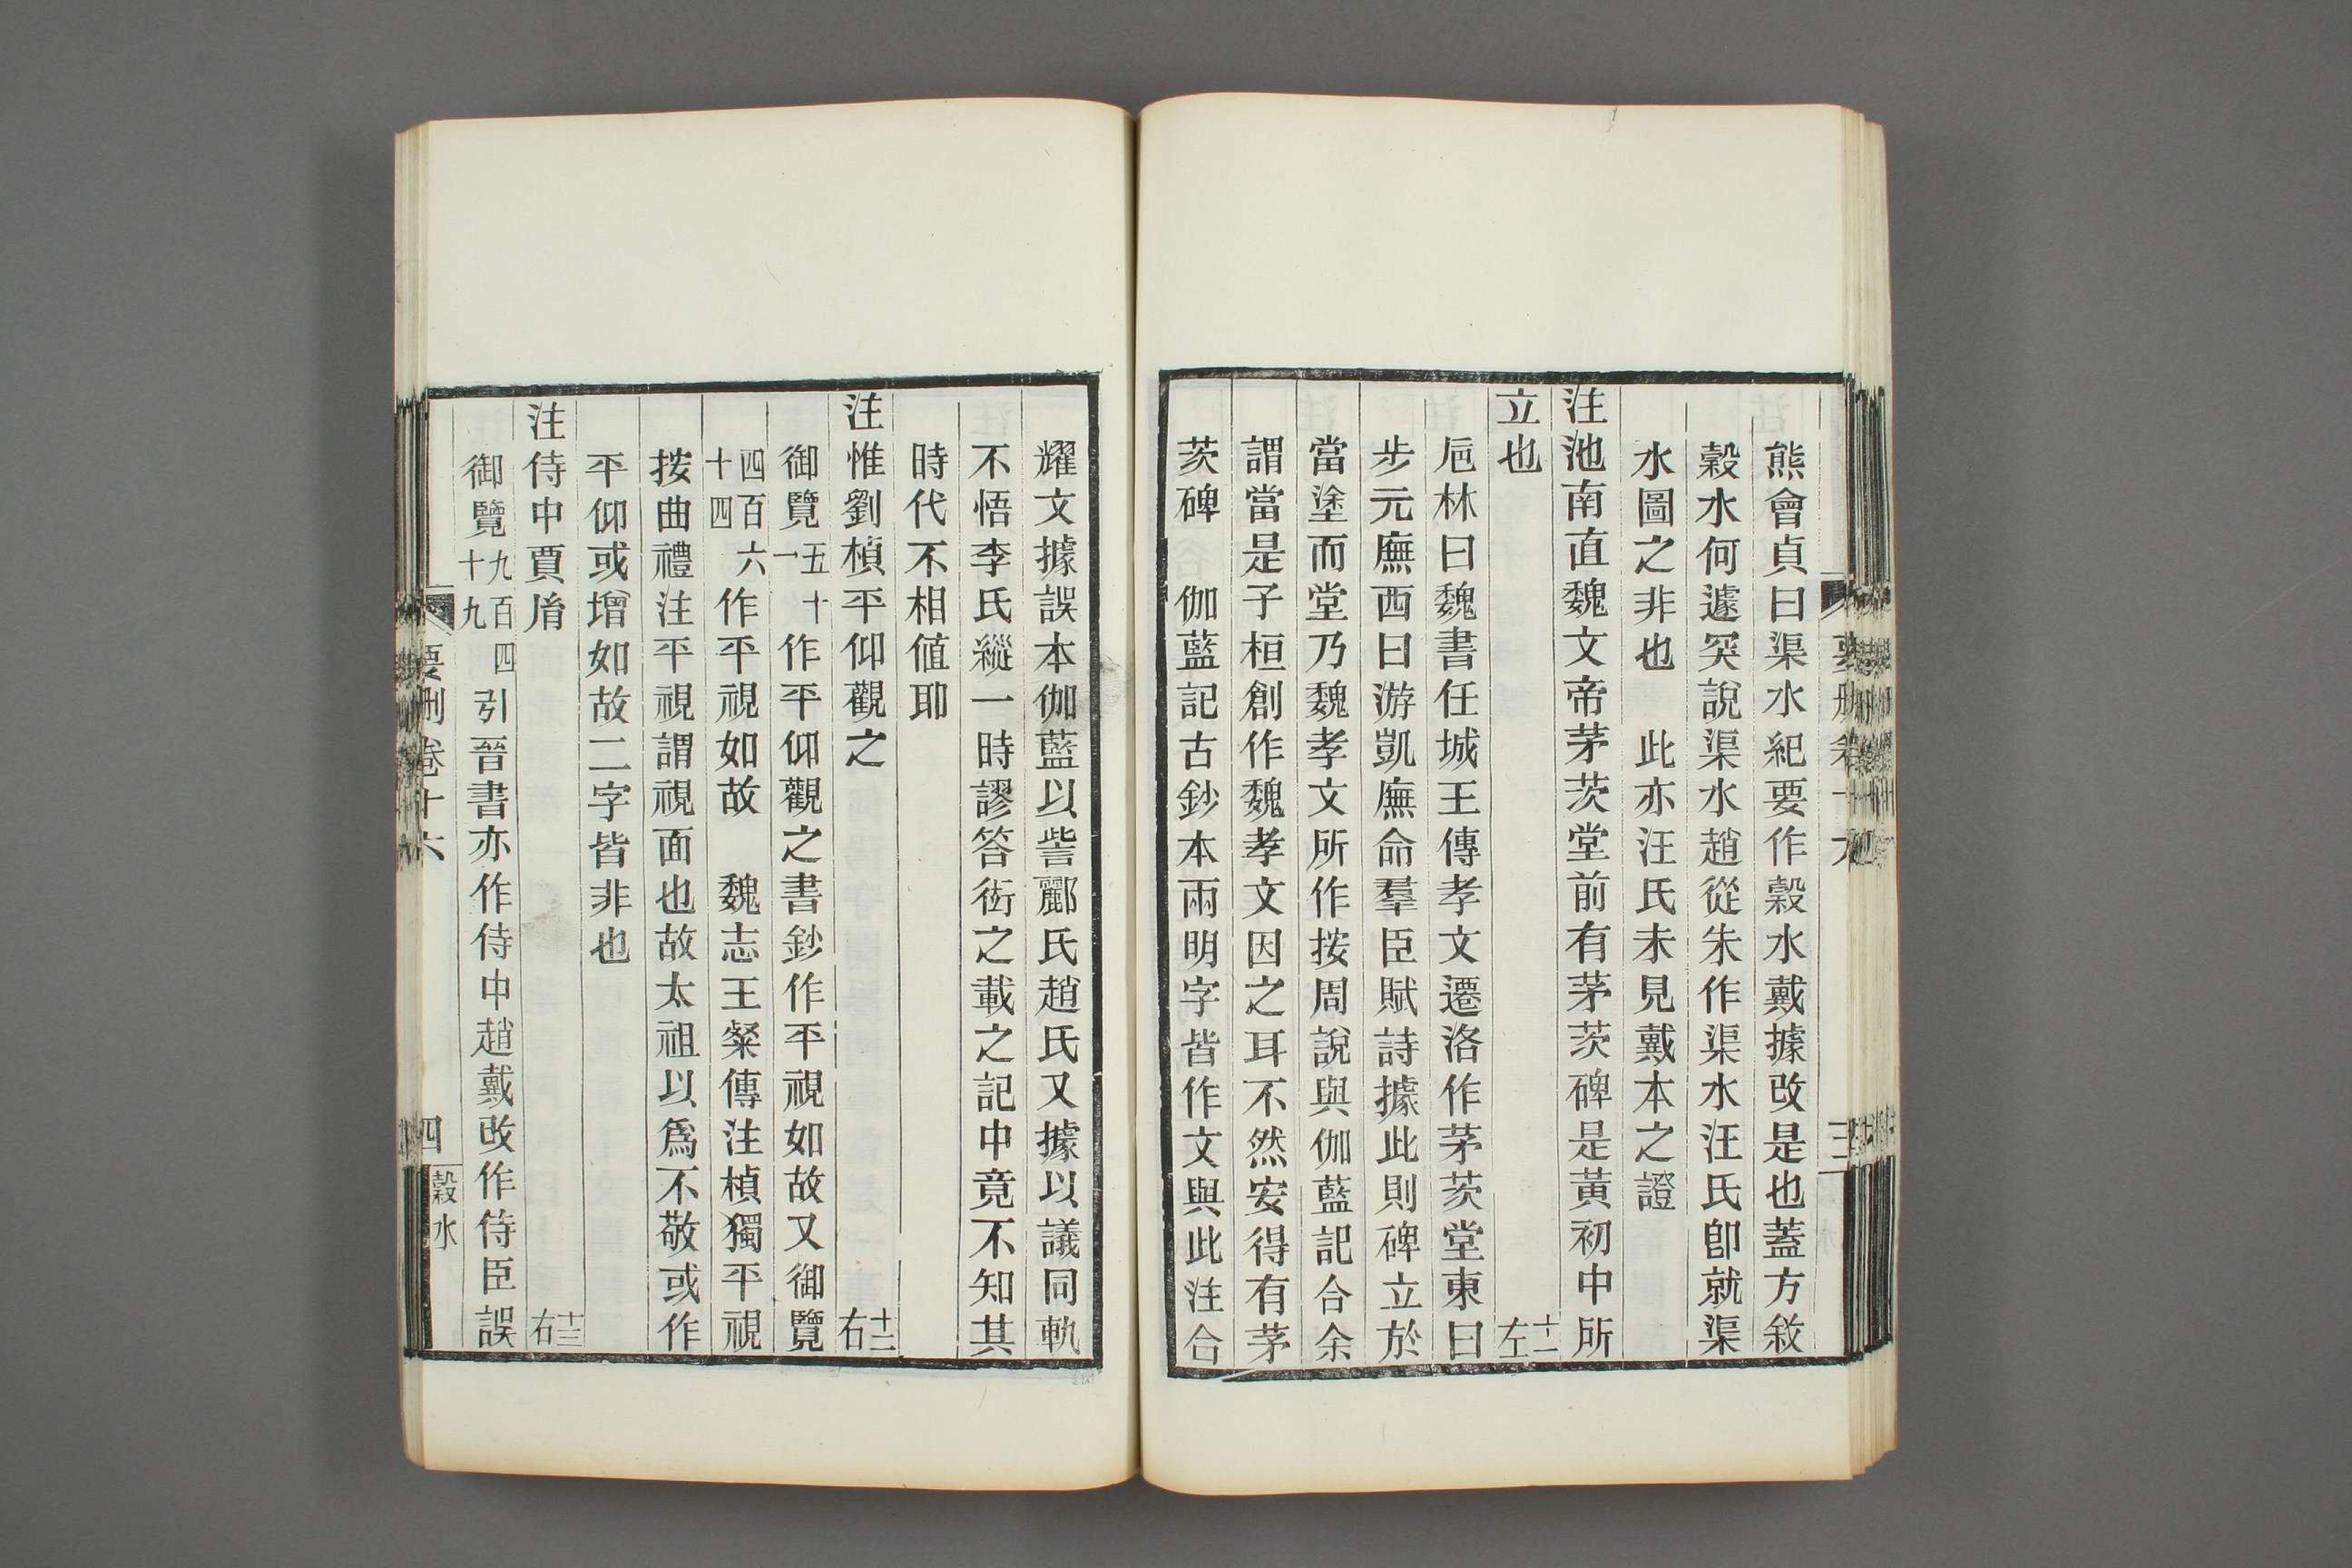 熊會貞曰渠水紀要作穀水戴據改是也蓋方敘
穀水何遽突說渠水趙從朱作渠水汪氏卽就渠
水圖之非也　此亦汪氏未見戴本之證
注池南直魏文帝茅茨堂前有茅茨碑是黃初中所
立也　十一左
巵林曰魏書任城王傳孝文遷洛作茅茨堂東曰
步元廡西曰游凱廡命羣臣賦詩據此則碑立於
當塗而堂乃魏孝文所作按周說與伽藍記合余
謂當是子桓創作魏孝文因之耳不然安得有茅
茨碑　伽藍記古鈔本兩明字皆作文與此注合
耀文據誤本伽藍以訾酈氏趙氏又據以議同軌
不悟李氏縱一時謬答衒之載之記中竟不知其
時代不相値耶
注惟劉楨平仰觀之　十二右
御覽五十一作平仰觀之書鈔作平視如故又御覽
四百六十四作平視如故　魏志王粲傳注楨獨平視
按曲禮注平視謂視面也故太祖以爲不敬或作
平仰或增如故二字皆非也
注侍中賈脩　十三右
御覽九百四十九引晉書亦作侍中趙戴改作侍臣誤
要刪卷十六　四　穀水